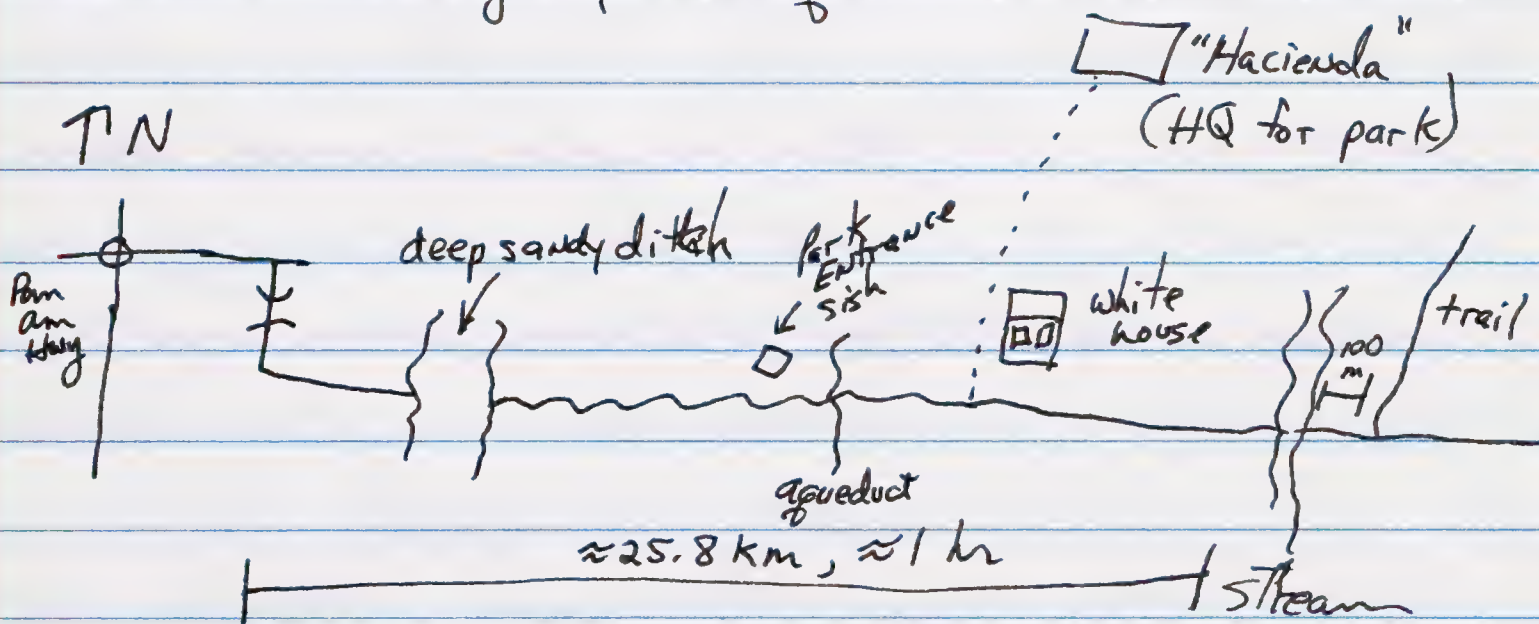 "Hacienda"
(HQ for park)
N
deep sandy ditch
Park
Entrance
sish
Pan
am
Hwy
white
house
100
m
trail
aqueduct
≈25.8 km, ≈1 hr
stream